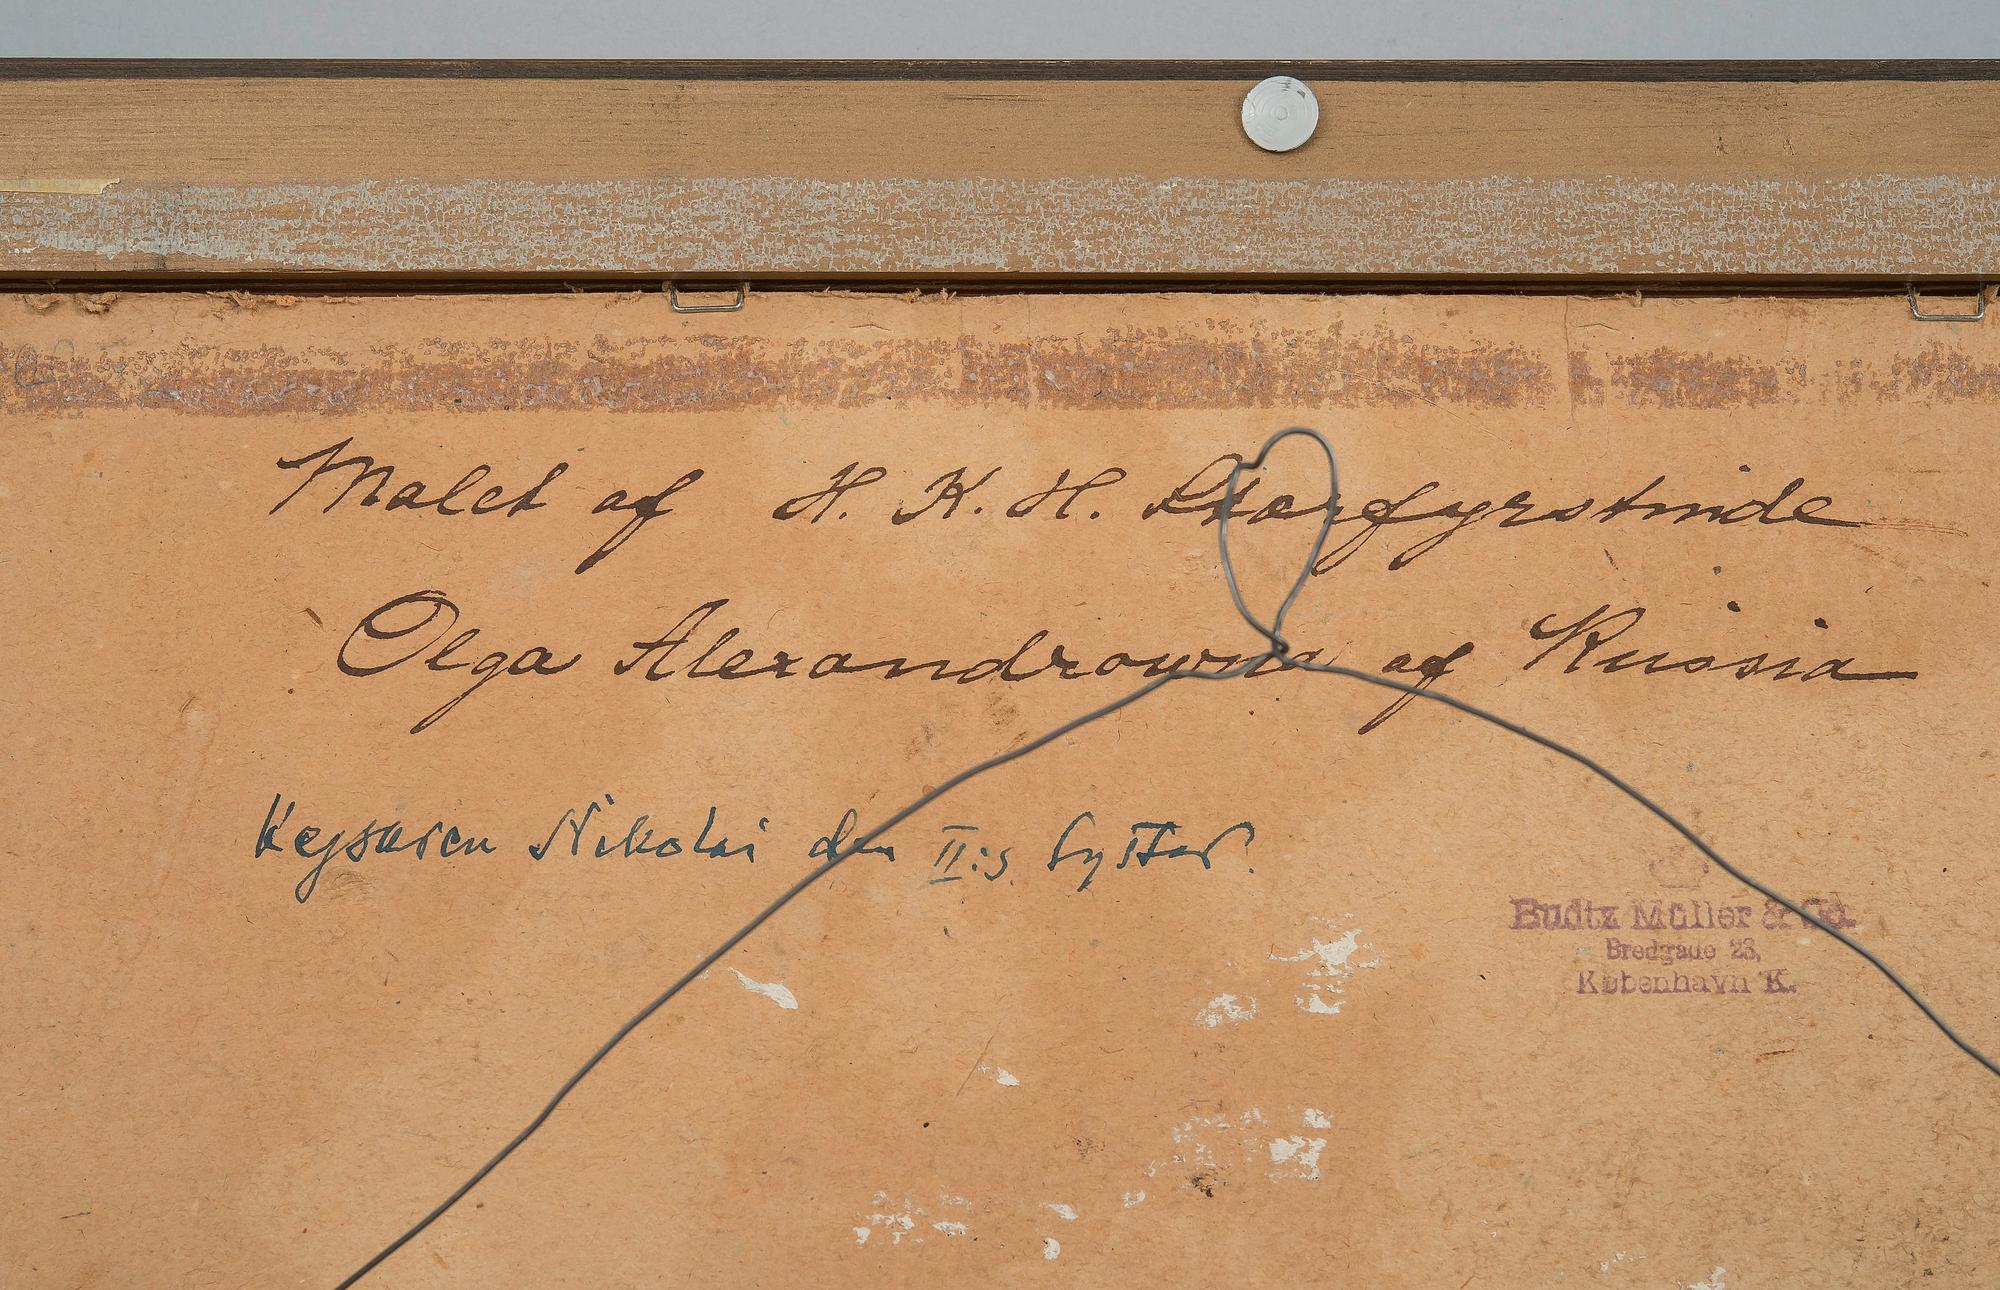 Malet af H. K. H. Storfyrstinde
Olga Alexandrowna af Russia
Kejsaren Nikolai den II:s syster.
Budtz Müller & Co.
Bredgade 23,
København K.